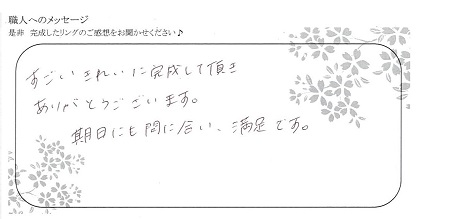 職人へのメッセージ
是非 完成したリングのご感想をお聞かせください♪
すごいきれいに完成して頂き
ありがとうございます。
期日にも間に合い、満足です。